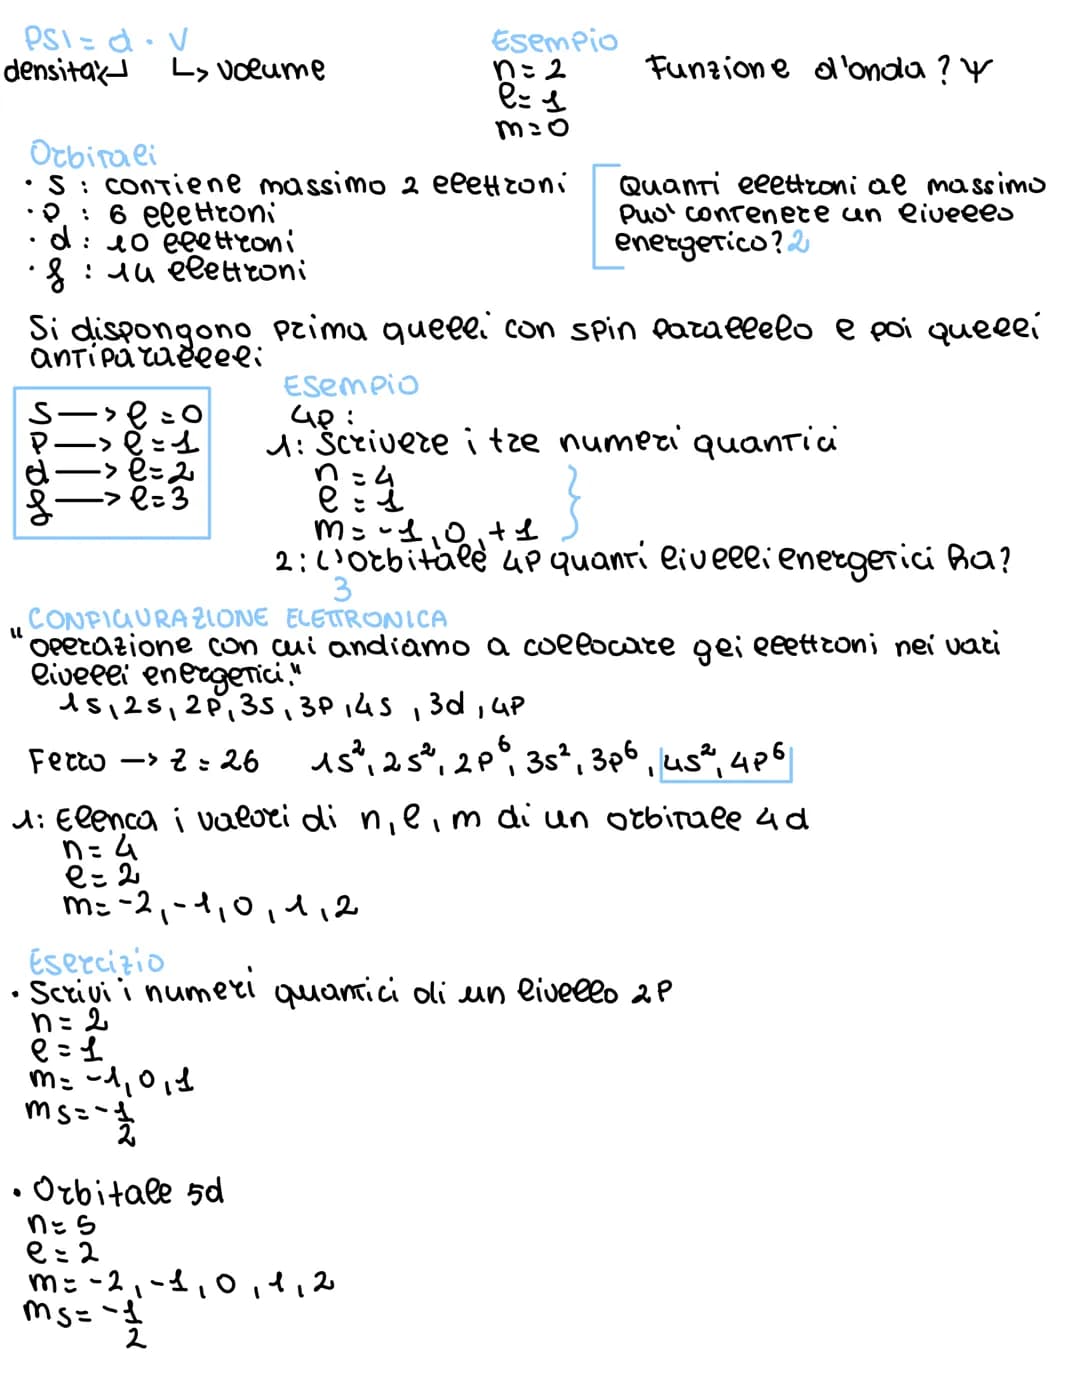 PSI = d · V
densità ↲ ↳ volume
Esempio
n = 2
l = 1
m = 0
Funzione d'onda? Ψ
Orbitali
· s : contiene massimo 2 elettroni
· p : 6 elettroni
· d : 10 elettroni
· f : 14 elettroni
Quanti elettroni al massimo
può contenere un livello
energetico? 2
Si dispongono prima quelli con spin parallelo e poi quelli
antiparalleli
s —> l = 0
p —> l = 1
d —> l = 2
f —> l = 3
Esempio
4p :
1: Scrivere i tre numeri quantici
n = 4
l = 1
m = -1, 0, +1
2: L'orbitale 4p quanti livelli energetici ha?
3
CONFIGURAZIONE ELETTRONICA
"operazione con cui andiamo a collocare gli elettroni nei vari
livelli energetici."
1s, 2s, 2p, 3s, 3p, 4s, 3d, 4p
Ferro —> Z = 26 1s², 2s², 2p⁶, 3s², 3p⁶, 4s², 4p⁶
1: Elenca i valori di n, l, m di un orbitale 4d
n = 4
l = 2
m = -2, -1, 0, 1, 2
Esercizio
· Scrivi i numeri quantici di un livello 2p
n = 2
l = 1
m = -1, 0, 1
ms = -1/2
· Orbitale 5d
n = 5
l = 2
m = -2, -1, 0, 1, 2
ms = -1/2